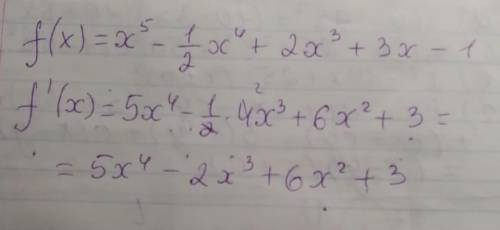 f(x) = x⁵ - 1/2 x⁴ + 2x³ + 3x - 1
f'(x) = 5x⁴ - 1/2 · 4x³ + 6x² + 3 =
= 5x⁴ - 2x³ + 6x² + 3